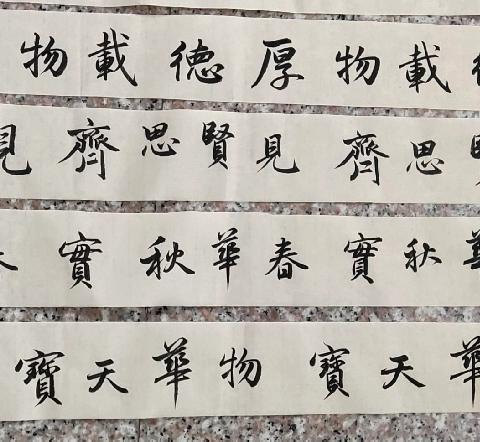 載物厚德載物
思齊見賢思齊見
秋實春華秋實
華天寶物華天寶